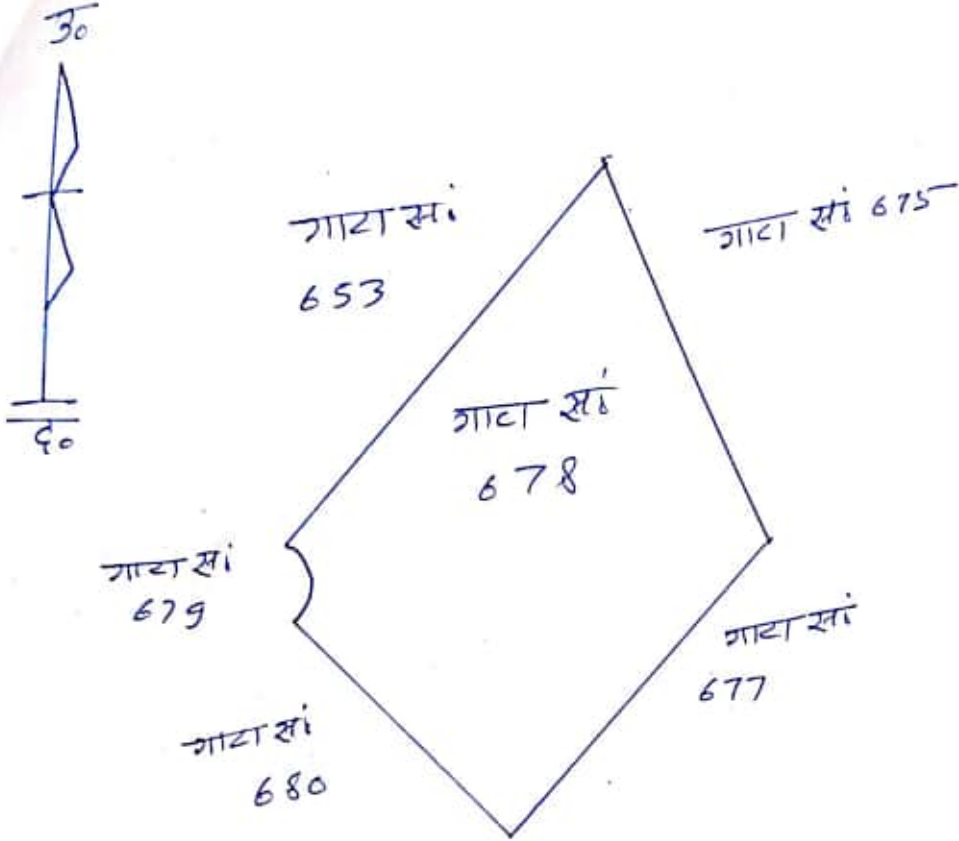 उ०
गाटा सं
653
गाटा सं 675
गाटा सं
678
द०
गाटा सं
679
गाटा सं
677
गाटा सं
680